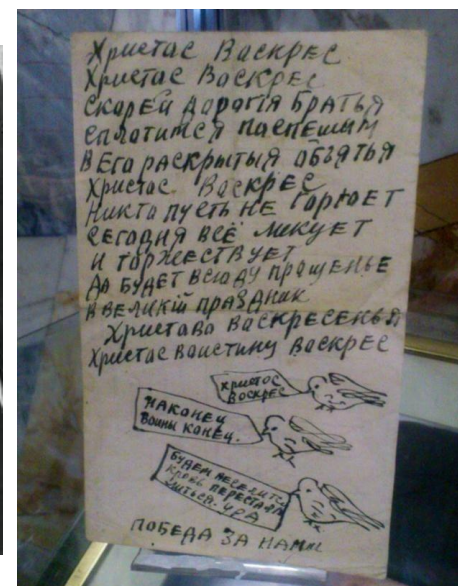 Христас Васкрес
Христас Васкрес
Скарей дарагія братья
сплотимся паспешим
В Его раскрытыя абъятья
Христас Васкрес
Никта пусть не горюет
сегодня всё ликует
и торжествует
да будет всюду пращенье
в великій праздник
Христава Васкресенья
Христас ваистину Васкрес
Христос
Воскрес
Наконец
Войны конец.
Будем веселится
кровь перестала
литься. Ура
Победа за нами